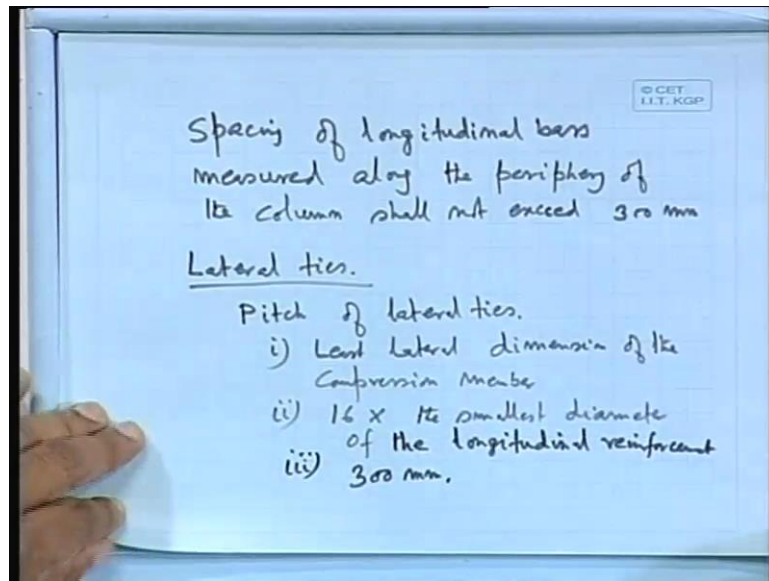 © CET
I.I.T. KGP
Spacing of longitudinal bars
measured along the periphery of
the column shall not exceed 300 mm
Lateral ties.
Pitch of lateral ties.
i) Least lateral dimension of the
Compression member
ii) 16 x the smallest diamete
of the longitudinal reinforcement
iii) 300 mm.